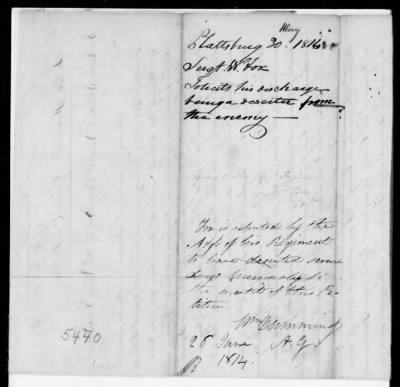 May
Plattsburg 30. 1814
Sergt. W. Fox
Solicits his discharge
being a deserter from
the enemy —
Fox is reported by the
Adjt of his Regiment
to have deserted some
days
the merit of this Pe-
tition.
Wm Cumming
A. G.
28 June
R 1814.
5470